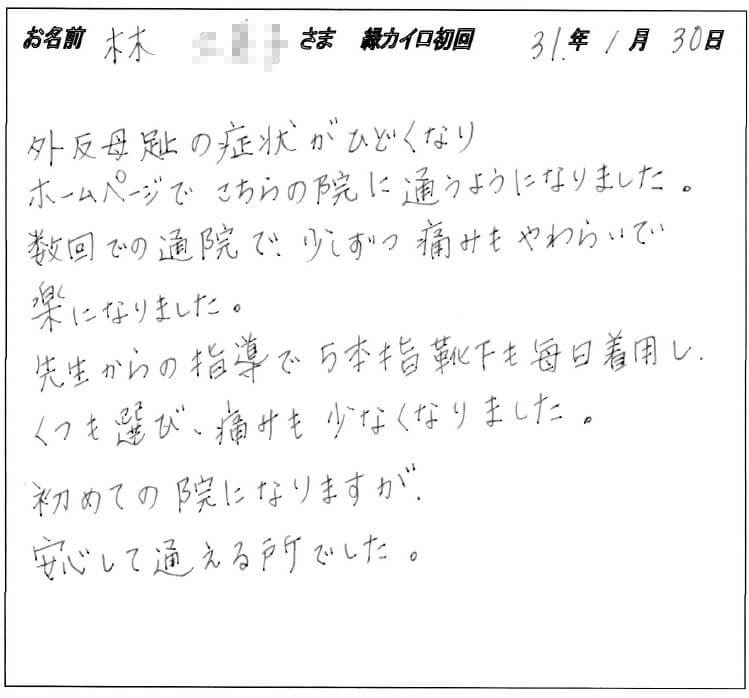 お名前 林 さま 縁カイロ初回 31.年 1月 30日
外反母趾の症状がひどくなり
ホームページでこちらの院に通うようになりました。
数回での通院で、少しずつ痛みもやわらいでい
楽になりました。
先生からの指導で5本指靴下も毎日着用し、
くつも選び、痛みも少なくなりました。
初めての院になりますが、
安心して通える所でした。